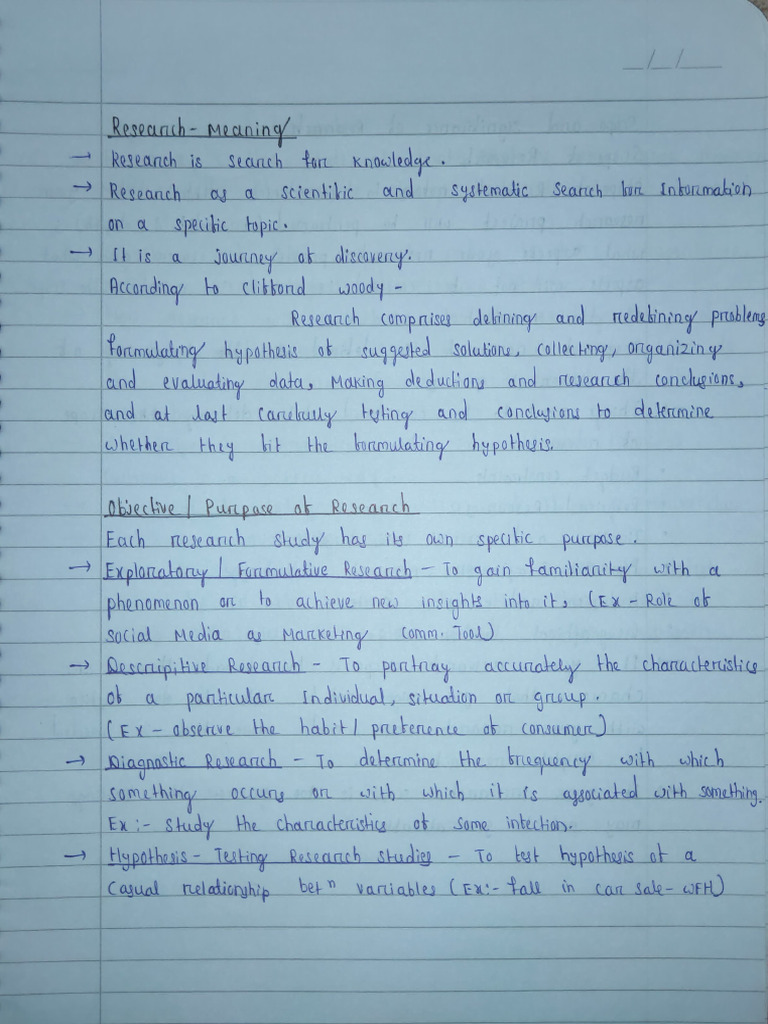 _/_/__
Research - Meaning
→ Research is search for knowledge.
→ Research as a scientific and systematic search for Information
on a specific topic.
→ It is a journey of discovery.
According to clifford woody -
Research comprises defining and redefining problems
formulating hypothesis of suggested solutions, collecting, organizing
and evaluating data, Making deductions and research conclusions,
and at last carefully testing and conclusions to determine
whether they fit the formulating hypothesis.
Objective / Purpose of Research
Each research study has its own specific purpose.
→ Exploratory / Formulative Research - To gain familiarity with a
phenomenon or to achieve new insights into it, (Ex - Role of
social Media as Marketing Comm. Tool)
→ Descripitive Research - To portray accurately the characteristics
of a particular Individual, situation or group.
(Ex - observe the habit / preference of consumer)
→ Diagnostic Research - To determine the frequency with which
something occurs or with which it is associated with something.
Ex :- study the characteristics of some infection.
→ Hypothesis - Testing Research studies - To test hypothesis of a
Casual relationship betⁿ variables (Ex:- fall in car sale - WFH)